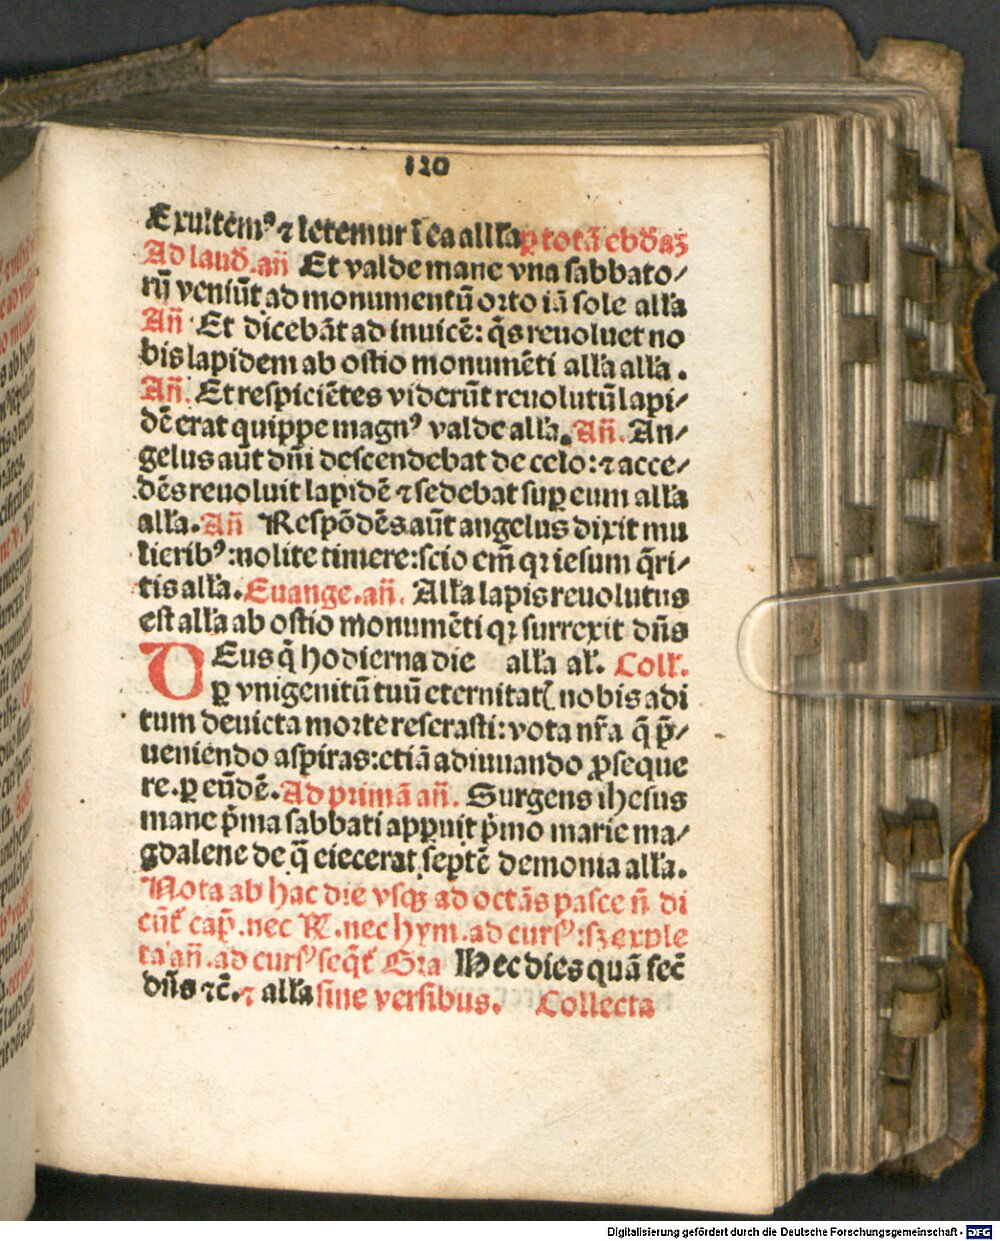 110
Exultem⁹ ⁊ letemur ī ea allľa ꝑ totā ebdōaꝫ
Ad laud̄. añ Et valde mane vna sabbato/
rū veniūt ad monumentū orto iā sole alľa
Añ Et dicebāt ad inuicē: q̄s reuoluet no
bis lapidem ab ostio monumēti alľa alľa.
Añ. Et respiciētes viderūt reuolutū lapi/
dē erat quippe magn⁹ valde alľa. Añ. An/
gelus aūt dn̄i descendebat de celo: ⁊ acce/
dēs reuoluit lapidē ⁊ sedebat suꝑ eum alľa
alľa. Añ Respōdēs aūt angelus dixit mu
lierib⁹: nolite timere: scio em̄ qꝛ iesum q̄ri/
tis alľa. Euange. añ. Alľa lapis reuolutus
est alľa ab ostio monumēti qꝛ surrexit dn̄s
DEus q̄ hodierna die alľa aľ. Colľ.
ꝑ vnigenitū tuū eternitatꝭ nobis adi
tum deuicta morte reserasti: vota nr̄a q̄ p̄/
ueniendo aspiras: etiā adiuuando ꝓseque
re. ꝑ eūdē. Ad primā añ. Surgens ihesus
mane p̄ma sabbati apꝑuit p̄mo marie ma/
gdalene de q̄ eiecerat septē demonia alľa.
Nota ab hac die vsqꝫ ad octās pasce n̄ di
cūt᷑ cap̄. nec ℟. nec hym. ad curs⁹: sꝫ exple
ta añ. ad curs⁹ seq̄t᷑ Gra Hec dies quā fec̄
dn̄s ⁊c̄. ⁊ alľa sine versibus. Collecta
Digitalisierung gefördert durch die Deutsche Forschungsgemeinschaft - DFG